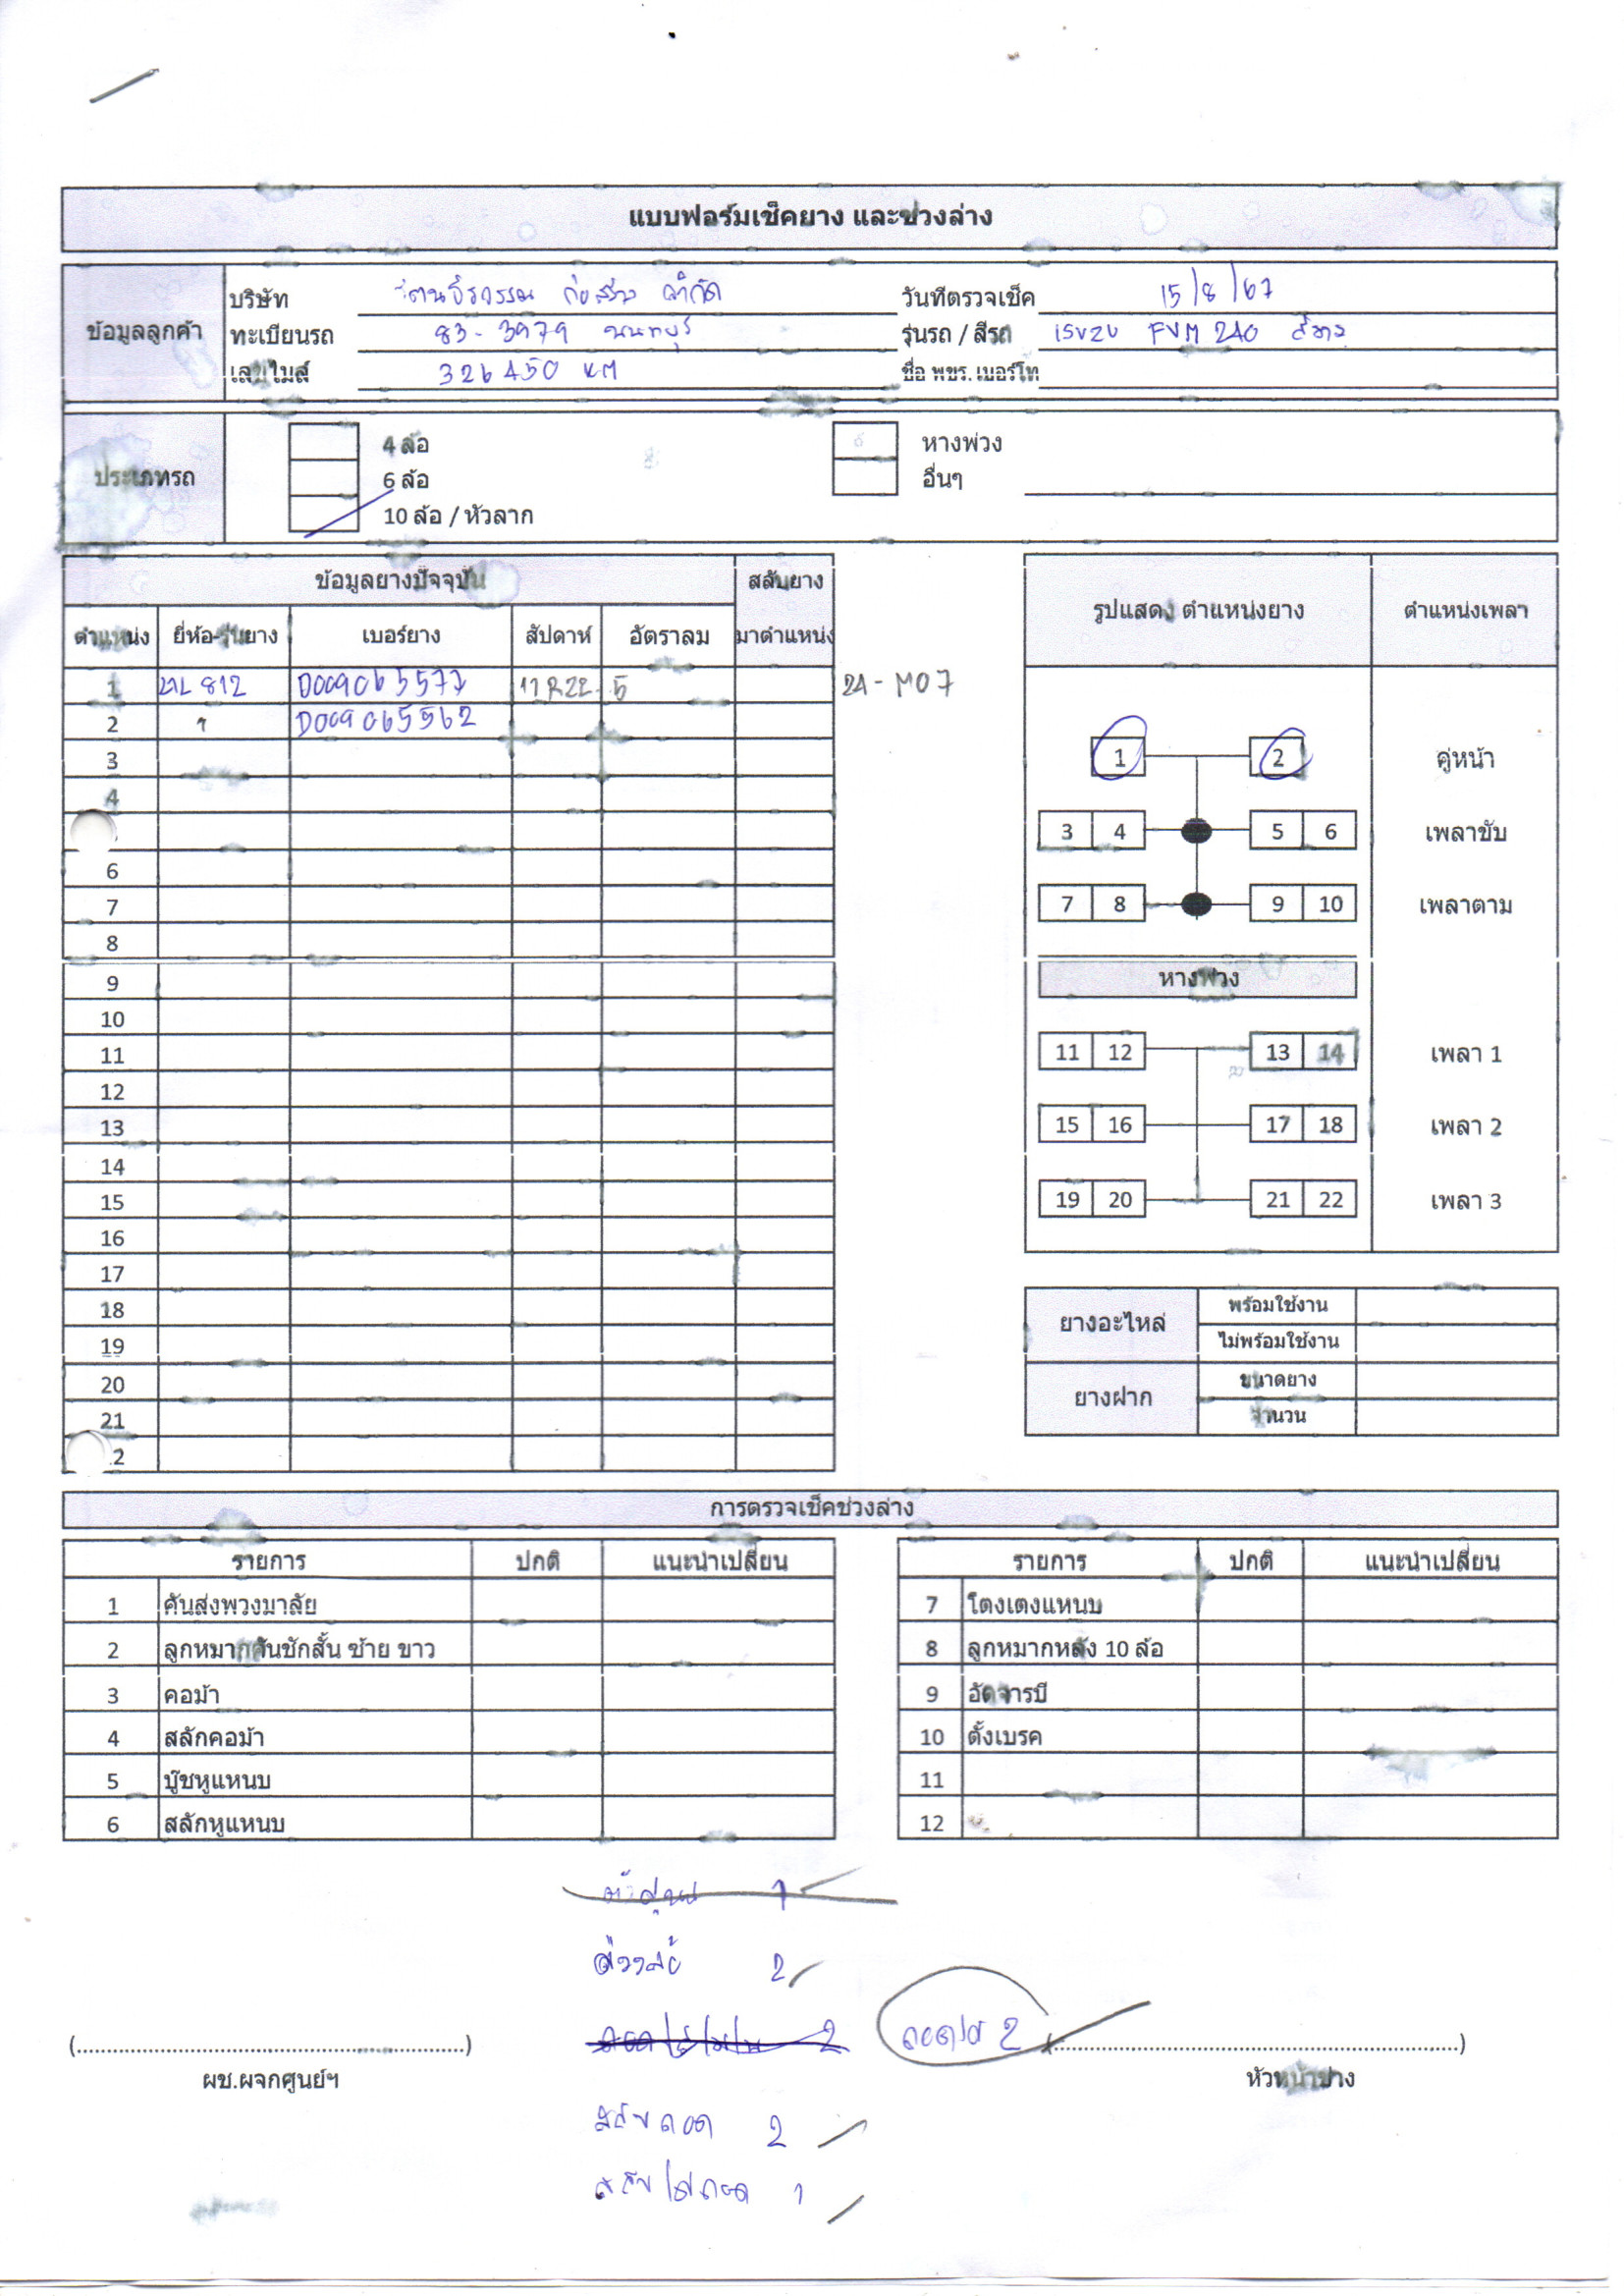 แบบฟอร์มเช็คยาง และช่วงล่าง
ข้อมูลลูกค้า
บริษัท ก่อสร้าง จำกัด
วันที่ตรวจเช็ค 15/8/67
ทะเบียนรถ 83-3979 นนทบุรี
รุ่นรถ / สีรถ ISUZU FVM 240
เลขไมล์ 326450 KM
ชื่อ พขร. เบอร์โท
ประเภทรถ
4 ล้อ
6 ล้อ
10 ล้อ / หัวลาก
หางพ่วง
อื่นๆ
ข้อมูลยางปัจจุบัน สลับยาง
ตำแหน่ง ยี่ห้อ-รุ่นยาง เบอร์ยาง สัปดาห์ อัตราลม มาตำแหน่ง
1 812 D009065577 11R22.5 24-M07
2 D009065562
3
4
6
7
8
9
10
11
12
13
14
15
16
17
18
19
20
21
รูปแสดง ตำแหน่งยาง ตำแหน่งเพลา
1 2 คู่หน้า
3 4 5 6 เพลาขับ
7 8 9 10 เพลาตาม
หางพ่วง
11 12 13 14 เพลา 1
15 16 17 18 เพลา 2
19 20 21 22 เพลา 3
ยางอะไหล่ พร้อมใช้งาน
ไม่พร้อมใช้งาน
ยางฝาก ขนาดยาง
จำนวน
การตรวจเช็คช่วงล่าง
รายการ ปกติ แนะนำเปลี่ยน
1 คันส่งพวงมาลัย
2 ลูกหมากคันชักสั้น ซ้าย ขาว
3 คอม้า
4 สลักคอม้า
5 บู๊ชหูแหนบ
6 สลักหูแหนบ
รายการ ปกติ แนะนำเปลี่ยน
7 โตงเตงแหนบ
8 ลูกหมากหลัง 10 ล้อ
9 อัดจารบี
10 ตั้งเบรค
11
12
1
ถ่วงล้อ 2
2 ถอดใส่ 2
สลับถอด 2
สลับไม่ถอด 1
(..........) (..........)
ผช.ผจกศูนย์ฯ
หัวหน้าช่าง